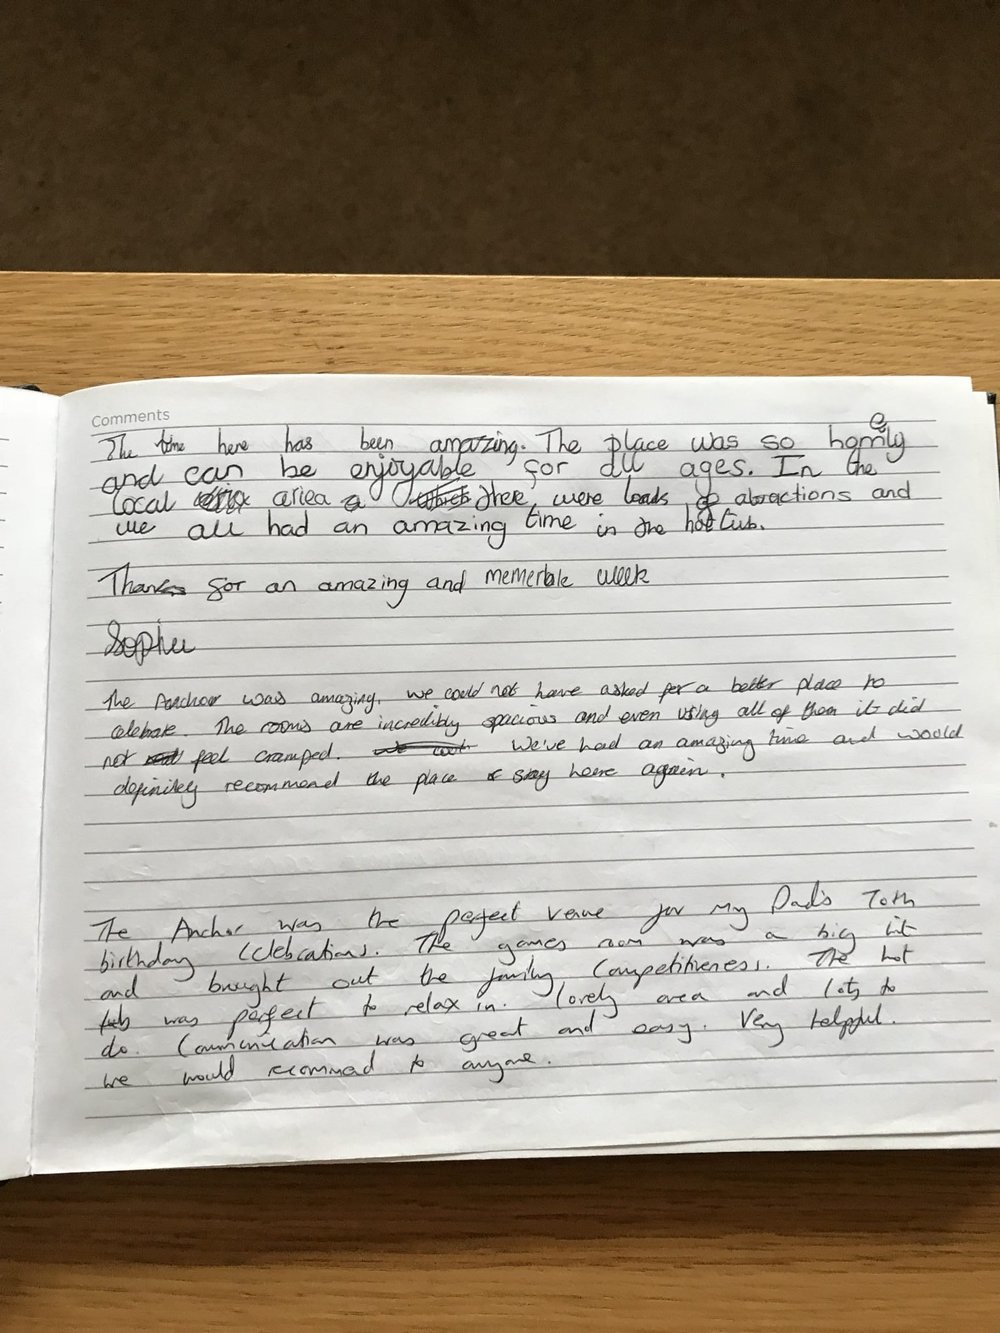 Comments
The time here has been amazing. The place was so homely
and can be enjoyable for all ages. In the
local area there were loads of attractions and
we all had an amazing time in the hot tub.
Thanks for an amazing and memerble week
Sophie
The Anchor was amazing, we could not have asked for a better place to
celebrate. The rooms are incredibly spacious and even using all of them it did
not feel cramped. We've had an amazing time and would
definitley recommend the place & stay here again.
The Anchor was the perfect venue for my Dad's 70th
birthday celebrations. The games room was a big hit
and brought out the family competitiveness. The hot
tub was perfect to relax in. Lovely area and lots to
do. Communication was great and easy. Very helpful.
We would recommend to anyone.